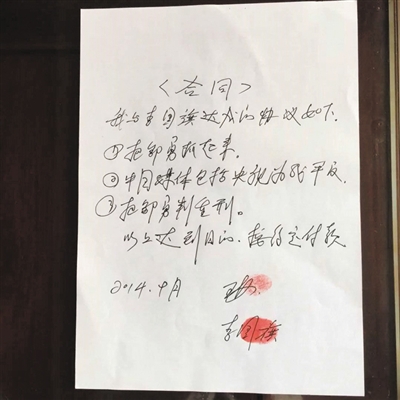 〈合同〉
我与李国达成的协议如下.
①把邹勇抓起来.
②中国媒体包括央视为我平反.
③把邹勇判重刑.
以上达到目的.按约定付款
2014. 月 王林
李国